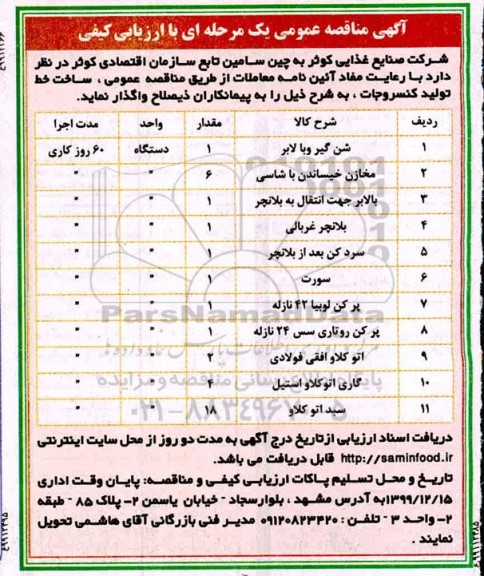 آگهی مناقصه عمومی یک مرحله ای با ارزیابی کیفی
شرکت صنایع غذایی کوثر به چین سامین تابع سازمان اقتصادی کوثر در نظر
دارد با رعایت مفاد آئین نامه معاملات از طریق مناقصه عمومی ، ساخت خط
تولید کنسروجات ، به شرح ذیل را به پیمانکاران ذیصلاح واگذار نماید.
ردیف شرح کالا مقدار واحد مدت اجرا
۱ شن گیر وبا لابر ۱ دستگاه ۶۰ روز کاری
۲ مخازن خیساندن با شاسی ۶ " "
۳ بالابر جهت انتقال به بلانچر ۱ " "
۴ بلانچر غربالی ۱ " "
۵ سرد کن بعد از بلانچر ۱ " "
۶ سورت ۱ " "
۷ پر کن لوبیا ۴۲ نازله ۱ " "
۸ پر کن روتاری سس ۲۴ نازله ۱ " "
۹ اتو کلاو افقی فولادی ۲ " "
۱۰ گاری اتوکلاو استیل ۴ " "
۱۱ سبد اتو کلاو ۱۸ " "
ParsNamadData
پایگاه اطلاع رسانی مناقصه و مزایده
۰۲۱-۸۸۳۴۹۶۷۰-۵
دریافت اسناد ارزیابی ازتاریخ درج آگهی به مدت دو روز از محل سایت اینترنتی
http://saminfood.ir قابل دریافت می باشد.
تاریخ و محل تسلیم پاکات ارزیابی کیفی و مناقصه: پایان وقت اداری
۱۳۹۹/۱۲/۱۵به آدرس مشهد ، بلوارسجاد - خیابان یاسمن ۲- پلاک ۸۵ - طبقه
۲- واحد ۳ - تلفن : ۰۹۱۲۰۸۲۳۴۲۰ مدیر فنی بازرگانی آقای هاشمی تحویل
نمایند .